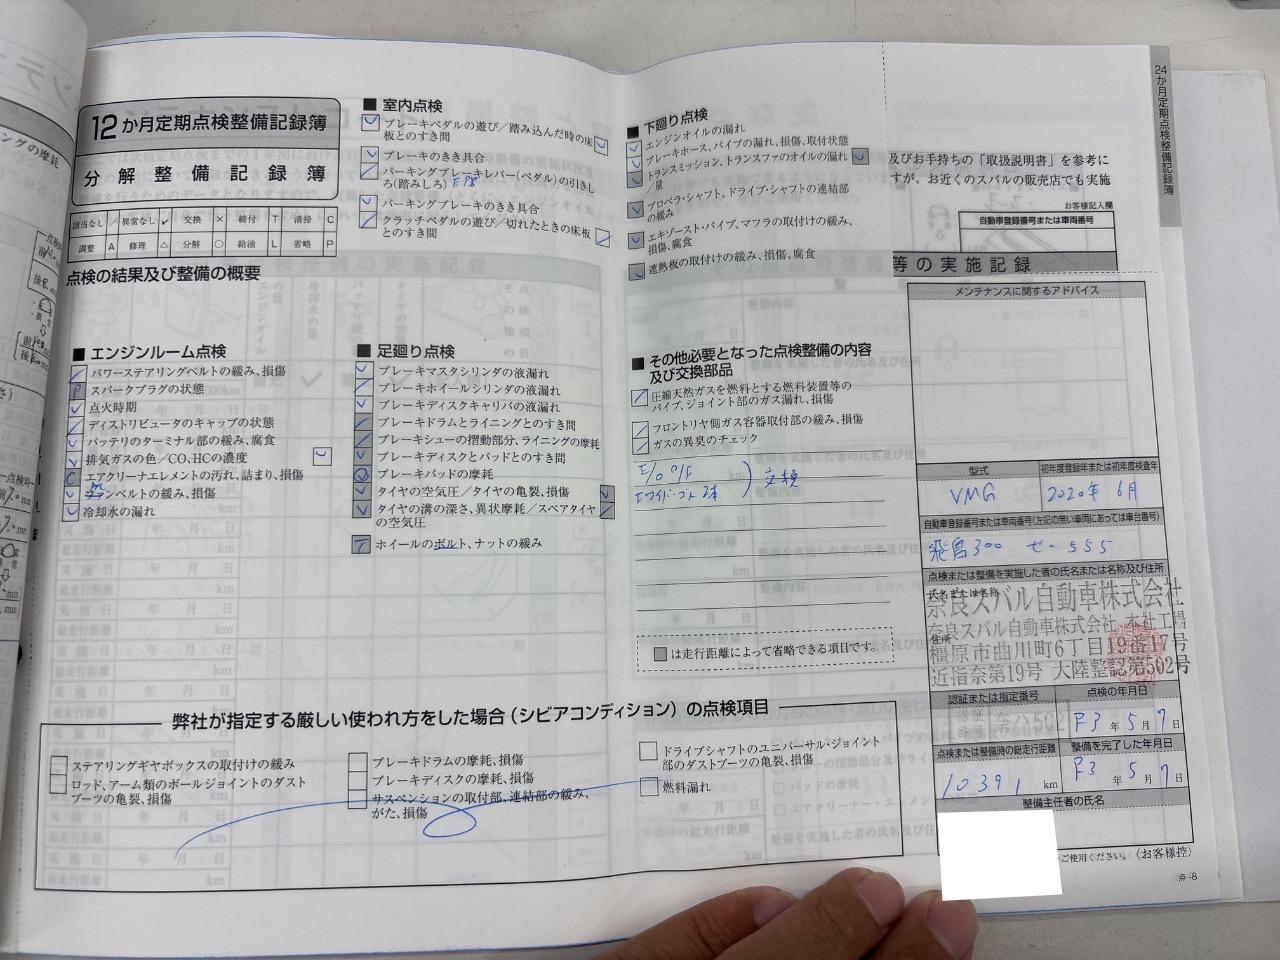 12か月定期点検整備記録簿
分解整備記録簿
該当なし / 異常なし レ 交換 × 締付 T 清掃 C
調整 A 修理 △ 分解 ○ 給油 L 省略 P
点検の結果及び整備の概要
■ エンジンルーム点検
パワーステアリングベルトの緩み、損傷
P スパークプラグの状態
点火時期
ディストリビュータのキャップの状態
バッテリのターミナル部の緩み、腐食
排気ガスの色/CO、HCの濃度
C エアクリーナエレメントの汚れ、詰まり、損傷
ファンベルトの緩み、損傷
冷却水の漏れ
■ 室内点検
ブレーキペダルの遊び/踏み込んだ時の床板とのすき間
ブレーキのきき具合
パーキングブレーキレバー(ペダル)の引きしろ(踏みしろ)
パーキングブレーキのきき具合
クラッチペダルの遊び/切れたときの床板とのすき間
■ 足廻り点検
ブレーキマスタシリンダの液漏れ
ブレーキホイールシリンダの液漏れ
ブレーキディスクキャリパの液漏れ
ブレーキドラムとライニングとのすき間
ブレーキシューの摺動部分、ライニングの摩耗
ブレーキディスクとパッドとのすき間
ブレーキパッドの摩耗
タイヤの空気圧/タイヤの亀裂、損傷
タイヤの溝の深さ、異状摩耗/スペアタイヤの空気圧
T ホイールのボルト、ナットの緩み
■ 下廻り点検
エンジンオイルの漏れ
ブレーキホース、パイプの漏れ、損傷、取付状態
トランスミッション、トランスファのオイルの漏れ/量
プロペラ・シャフト、ドライブ・シャフトの連結部の緩み
エキゾースト・パイプ、マフラの取付けの緩み、損傷、腐食
遮熱板の取付けの緩み、損傷、腐食
■ その他必要となった点検整備の内容及び交換部品
圧縮天然ガスを燃料とする燃料装置等のパイプ、ジョイント部のガス漏れ、損傷
フロントリヤ側ガス容器取付部の緩み、損傷
ガスの異臭のチェック
E/O O/F
Fワイパーゴム 2本 ) 交換
は走行距離によって省略できる項目です。
弊社が指定する厳しい使われ方をした場合(シビアコンディション)の点検項目
ステアリングギヤボックスの取付けの緩み
ロッド、アーム類のボールジョイントのダストブーツの亀裂、損傷
ブレーキドラムの摩耗、損傷
ブレーキディスクの摩耗、損傷
サスペンションの取付部、連結部の緩み、がた、損傷
ドライブシャフトのユニバーサル・ジョイント部のダストブーツの亀裂、損傷
燃料漏れ
24か月定期点検整備記録簿
及びお手持ちの「取扱説明書」を参考に
すが、お近くのスバルの販売店でも実施
お客様記入欄
自動車登録番号または車両番号
等の実施記録
メンテナンスに関するアドバイス
型式
初年度登録年または初年度検査年
VMG
2020年 6月
自動車登録番号または車両番号(左記の無い車両にあっては車台番号)
飛鳥300 せ・555
点検または整備を実施した者の氏名または名称及び住所
氏名または名称
奈良スバル自動車株式会社
奈良スバル自動車株式会社 本社工場
住所
橿原市曲川町6丁目19番17号
近指奈第19号 大陸整認第502号
認証または指定番号
点検の年月日
R3年5月7日
点検または整備時の総走行距離
整備を完了した年月日
10391 km
R3年5月7日
整備主任者の氏名
ご使用ください。(お客様控)
点-8